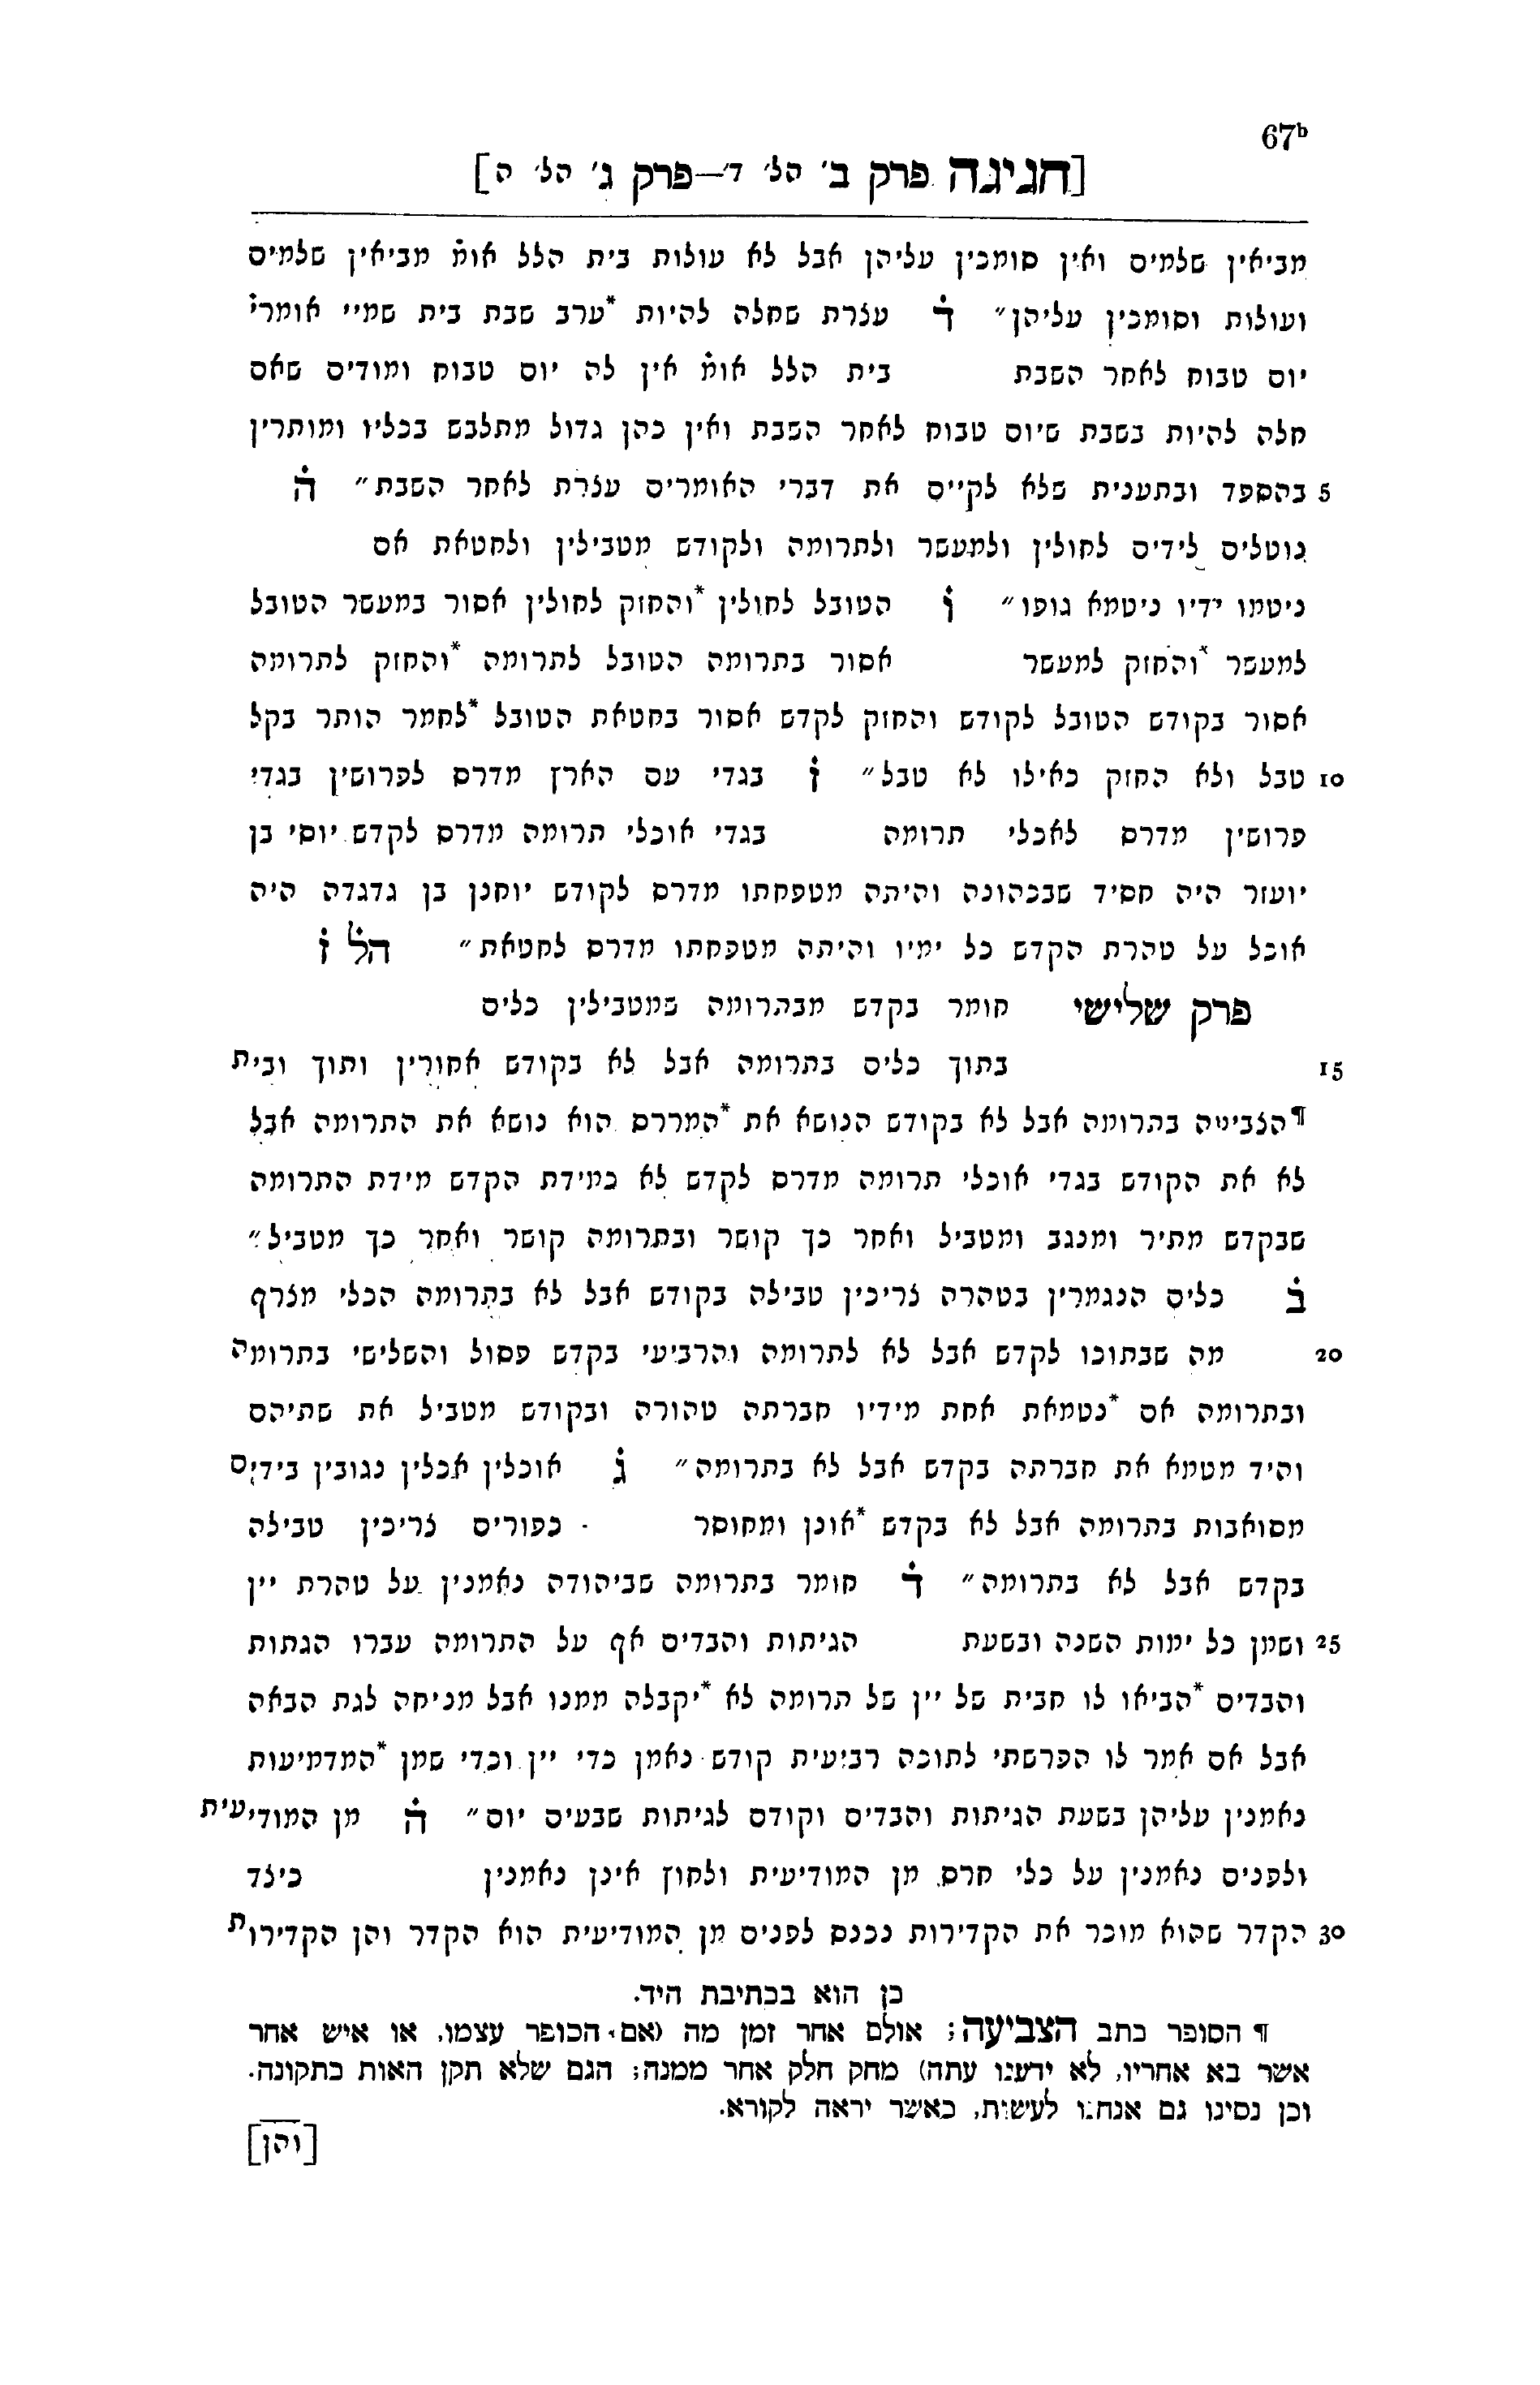 67b
[חגיגה פרק ב' הל' ד'—פרק ג' הל' ה]
מביאין שלמים ואין סומכין עליהן אבל לא עולות בית הלל אומ̇ מביאין שלמים
ועולות וסומכין עליהן״ ד̇ עצרת שחלה להיות *ערב שבת בית שמיי אומרי̇
יום טבוח לאחר השבת בית הלל אומ̇ אין לה יום טבוח ומודים שאם
חלה להיות בשבת שיום טבוח לאחר השבת ואין כהן גדול מתלבש בכליו ומותרין
5 בהספד ובתענית שלא לקיים את דברי האומרים עצרת לאחר השבת״ ה̇
נוטלים לידים לחולין ולמעשר ולתרומה ולקודש מטבילין ולחטאת אם
ניטמו ידיו ניטמא גופו״ ו̇ הטובל לחולין *והחזק לחולין אסור במעשר הטובל
למעשר *והחזק למעשר אסור בתרומה הטובל לתרומה *והחזק לתרומה
אסור בקודש הטובל לקודש והחזק לקדש אסור בחטאת הטובל *לחמר הותר בקל
10 טבל ולא החזק כאילו לא טבל״ ז̇ בגדי עם הארץ מדרס לפרושין בגדי
פרושין מדרס לאכלי תרומה בגדי אוכלי תרומה מדרס לקדש יוסי בן
יועזר היה חסיד שבכהונה והיתה מטפחתו מדרס לקודש יוחנן בן גדגדה היה
אוכל על טהרת הקדש כל ימיו והיתה מטפחתו מדרס לחטאת״ הל̇ ז̇
פרק שלישי חומר בקדש מבתרומה שמטבילין כלים
15 בתוך כלים בתרומה אבל לא בקודש אחורין ותוך ובית
¶הצביטה בתרומה אבל לא בקודש הנושא את *המררס הוא נושא את התרומה אבל
לא את הקודש בגדי אוכלי תרומה מדרס לקדש לא כמידת הקדש מידת התרומה
שבקדש מתיר ומנגב ומטביל ואחר כך קושר ובתרומה קושר ואחר כך מטביל״
ב̇ כלים הנגמרין בטהרה צריכין טבילה בקודש אבל לא בתרומה הכלי מצרף
20 מה שבתוכו לקדש אבל לא לתרומה והרביעי בקדש פסול והשלישי בתרומה
ובתרומה אם *נטמאת אחת מידיו חברתה טהורה ובקודש מטביל את שתיהם
והיד מטמא את חברתה בקדש אבל לא בתרומה״ ג̇ אוכלין אכלין נגובין בידים
מסואבות בתרומה אבל לא בקדש *אונן ומחוסר כפורים צריכין טבילה
בקדש אבל לא בתרומה״ ד̇ חומר בתרומה שביהודה נאמנין על טהרת יין
25 ושמן כל ימות השנה ובשעת הגיתות והבדים אף על התרומה עברו הגתות
והבדים *הביאו לו חבית של יין של תרומה לא *יקבלה ממנו אבל מניחה לגת הבאה
אבל אם אמר לו הפרשתי לתוכה רביעית קודש נאמן כדי יין וכדי שמן *המדמיעות
נאמנין עליהן בשעת הגיתות והבדים וקודם לגיתות שבעים יום״ ה̇ מן המודיעית
ולפנים נאמנין על כלי חרס מן המודיעית ולחוץ אינן נאמנין כיצד
30 הקדר שהוא מוכר את הקדירות נכנס לפנים מן המודיעית הוא הקדר והן הקדירות
כן הוא בכתיבת היד.
¶ הסופר כתב הצביעה; אולם אחר זמן מה (אם הסופר עצמו, או איש אחר
אשר בא אחריו, לא ידענו עתה) מחק חלק אחר ממנה; הגם שלא תקן האות כתקונה.
וכן נסינו גם אנחנו לעשות, כאשר יראה לקורא.
[והן]